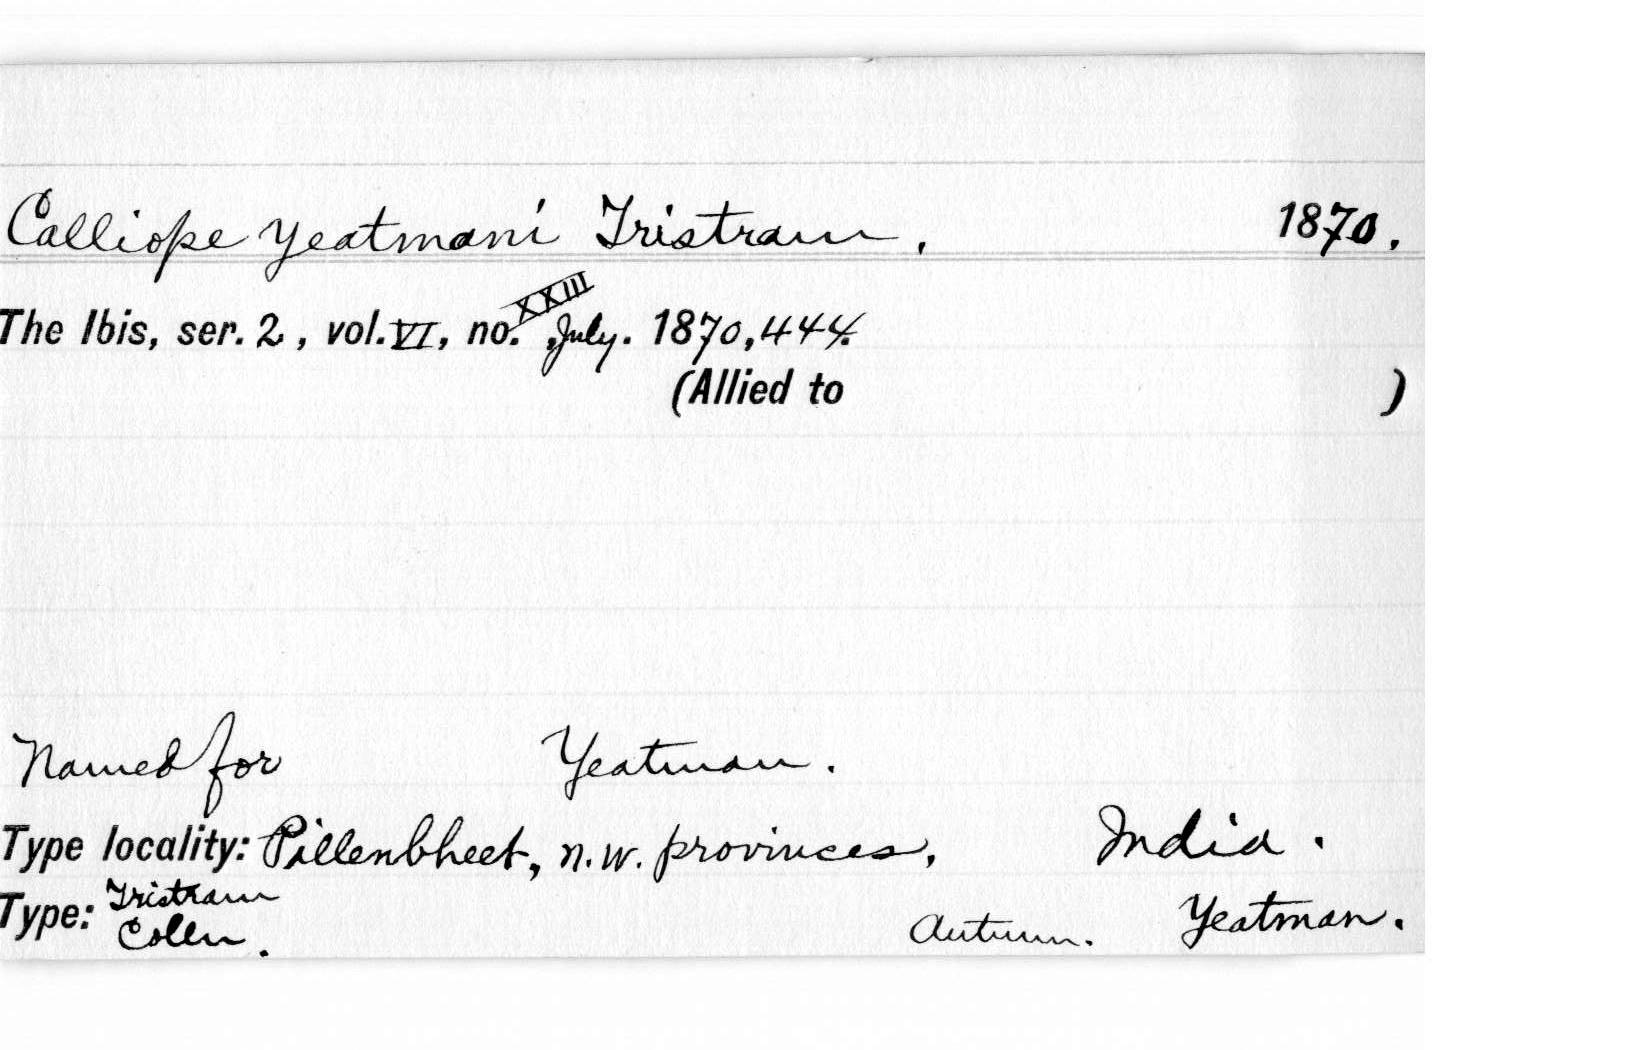 Calliope yeatmani Tristram, 1870.
The Ibis, ser. 2, vol. VI, no. XXIII, July. 1870, 444.
(Allied to )
Named for Yeatman.
Type locality: Pillenbheet, n.w. provinces, India.
Type: Tristram Colln. Autumn. Yeatman.